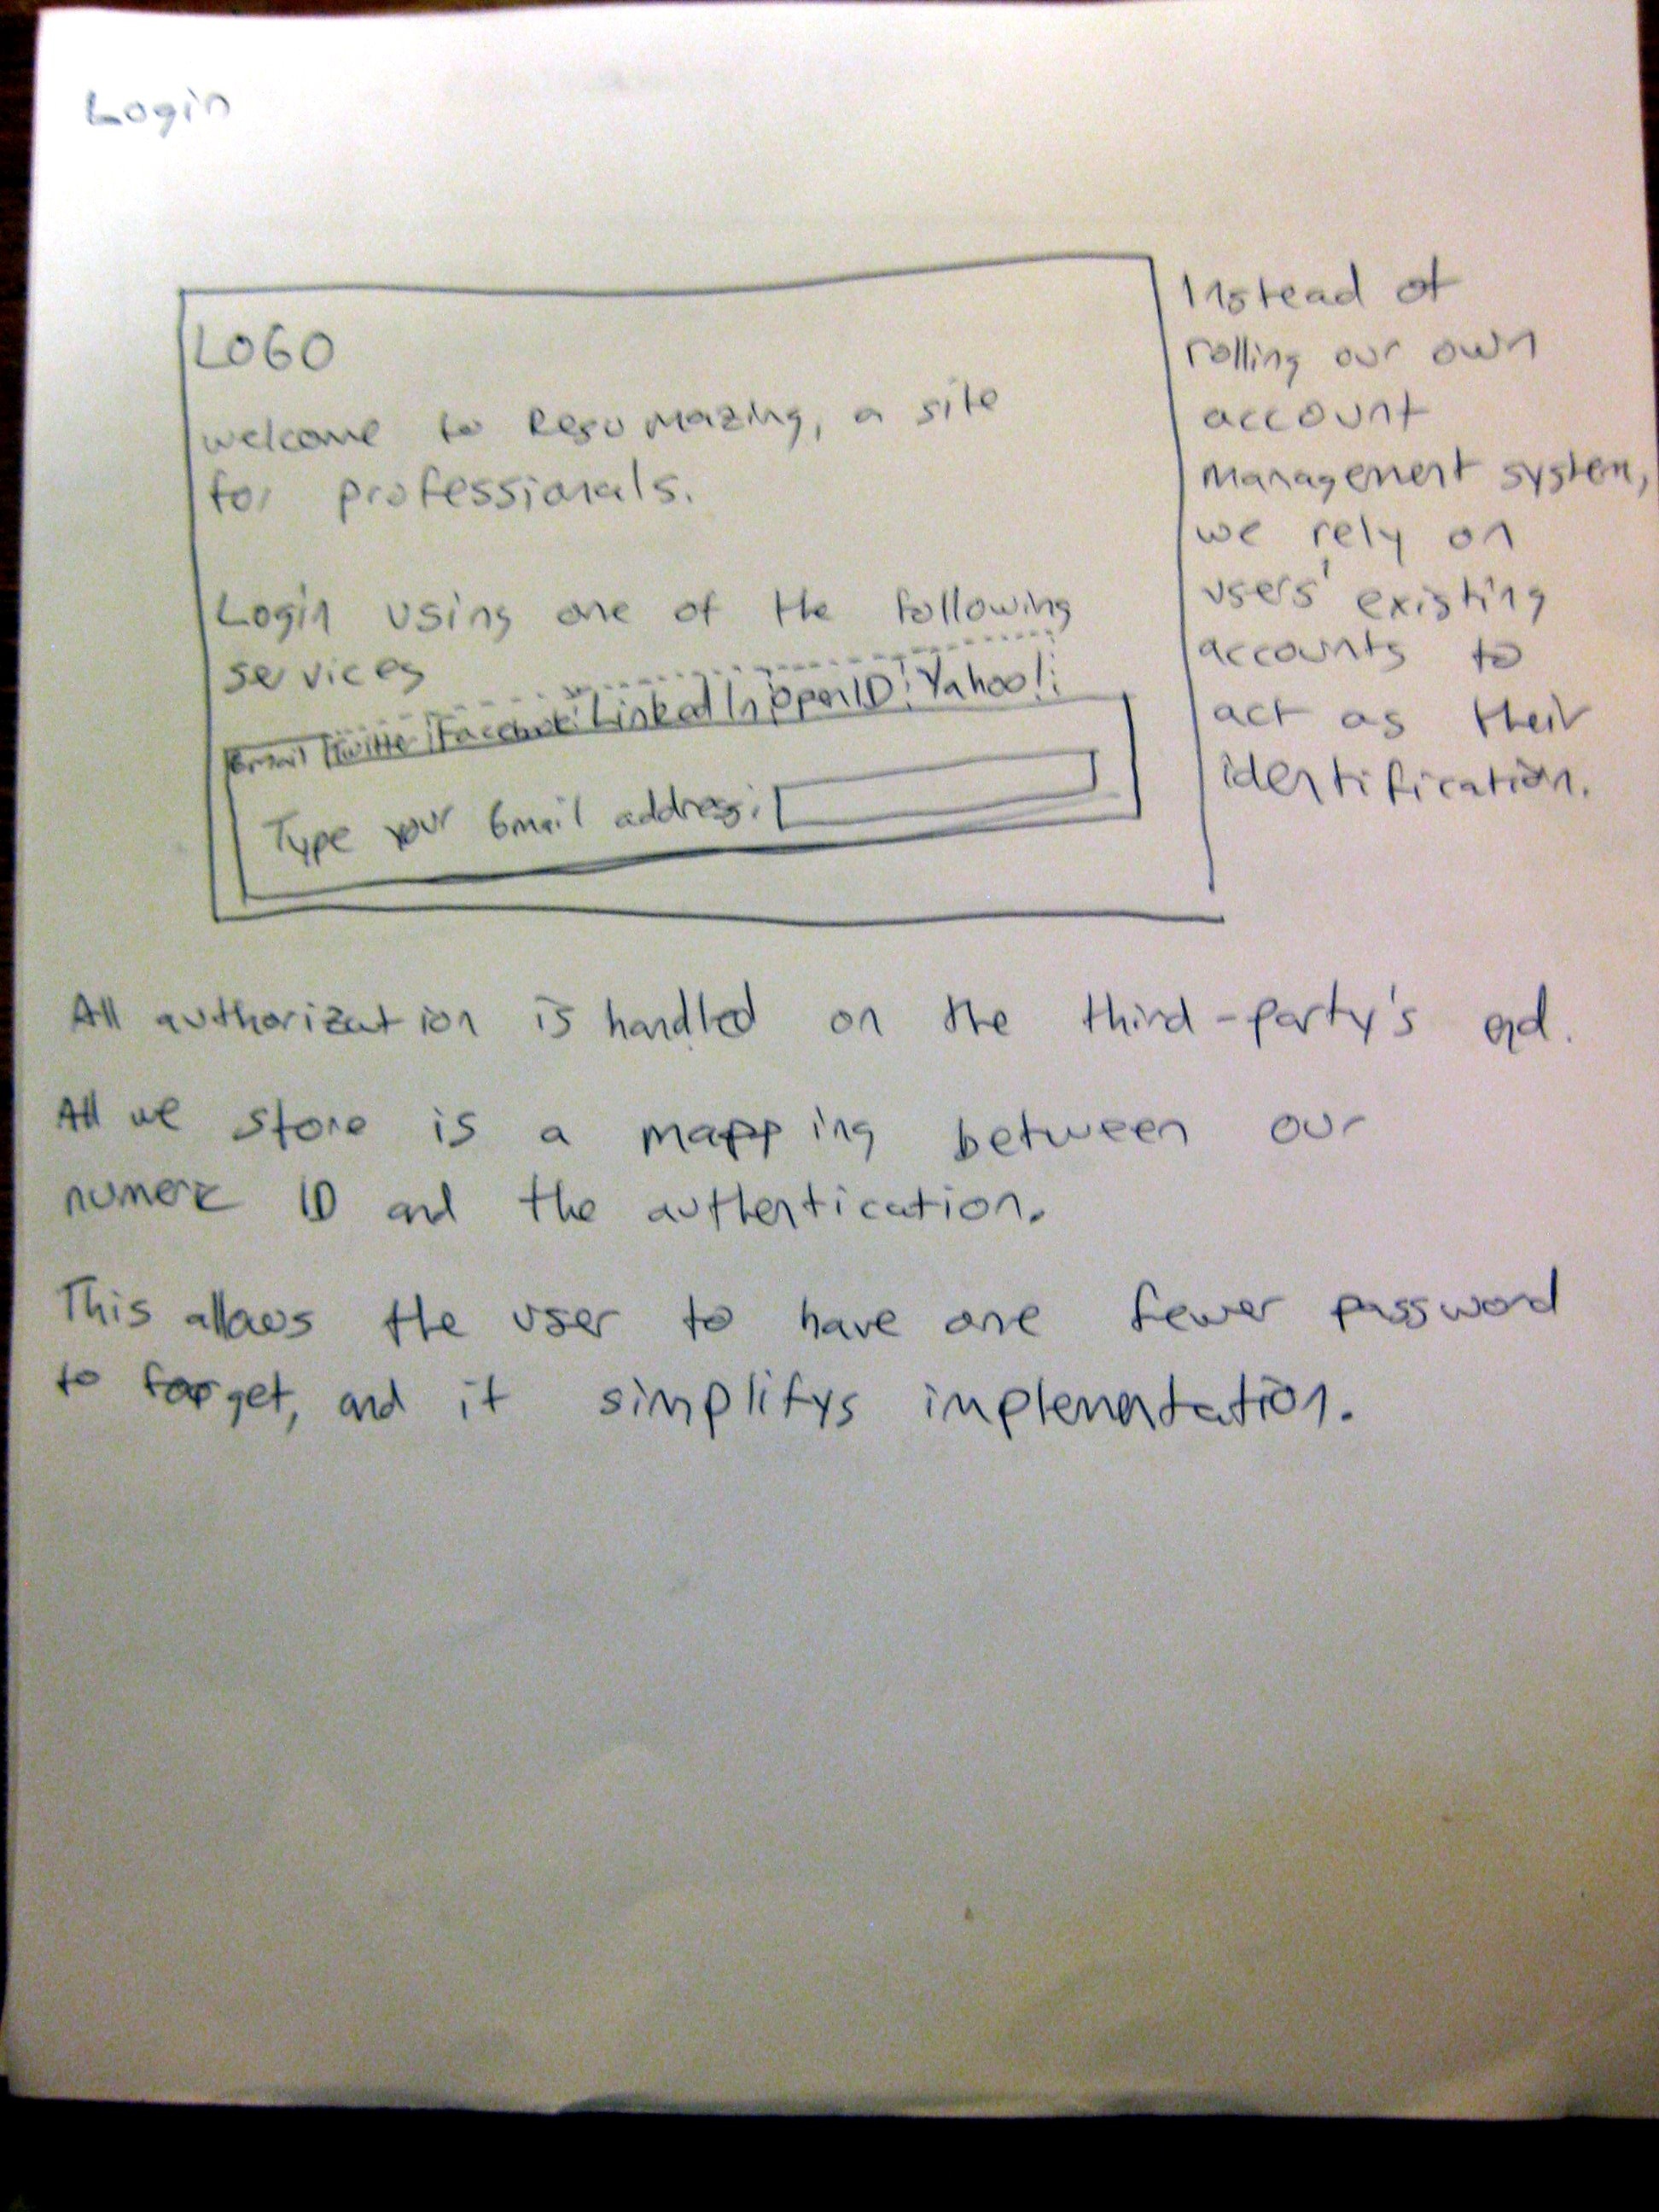 Login
LOGO
welcome to Resumazing, a site
for professionals.
Login using one of the following
services
Gmail Twitter Facebook LinkedIn OpenID Yahoo!
Type your Gmail address:
Instead of
rolling our own
account
management system,
we rely on
users' existing
accounts to
act as their
identification.
All authorization is handled on the third-party's end.
All we store is a mapping between our
numeric ID and the authentication.
This allows the user to have one fewer password
to forget, and it simplifys implementation.